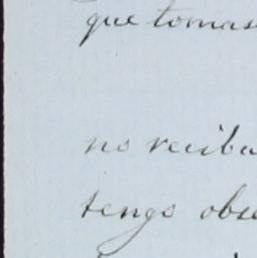 que tomas
no reciba
tengo obse